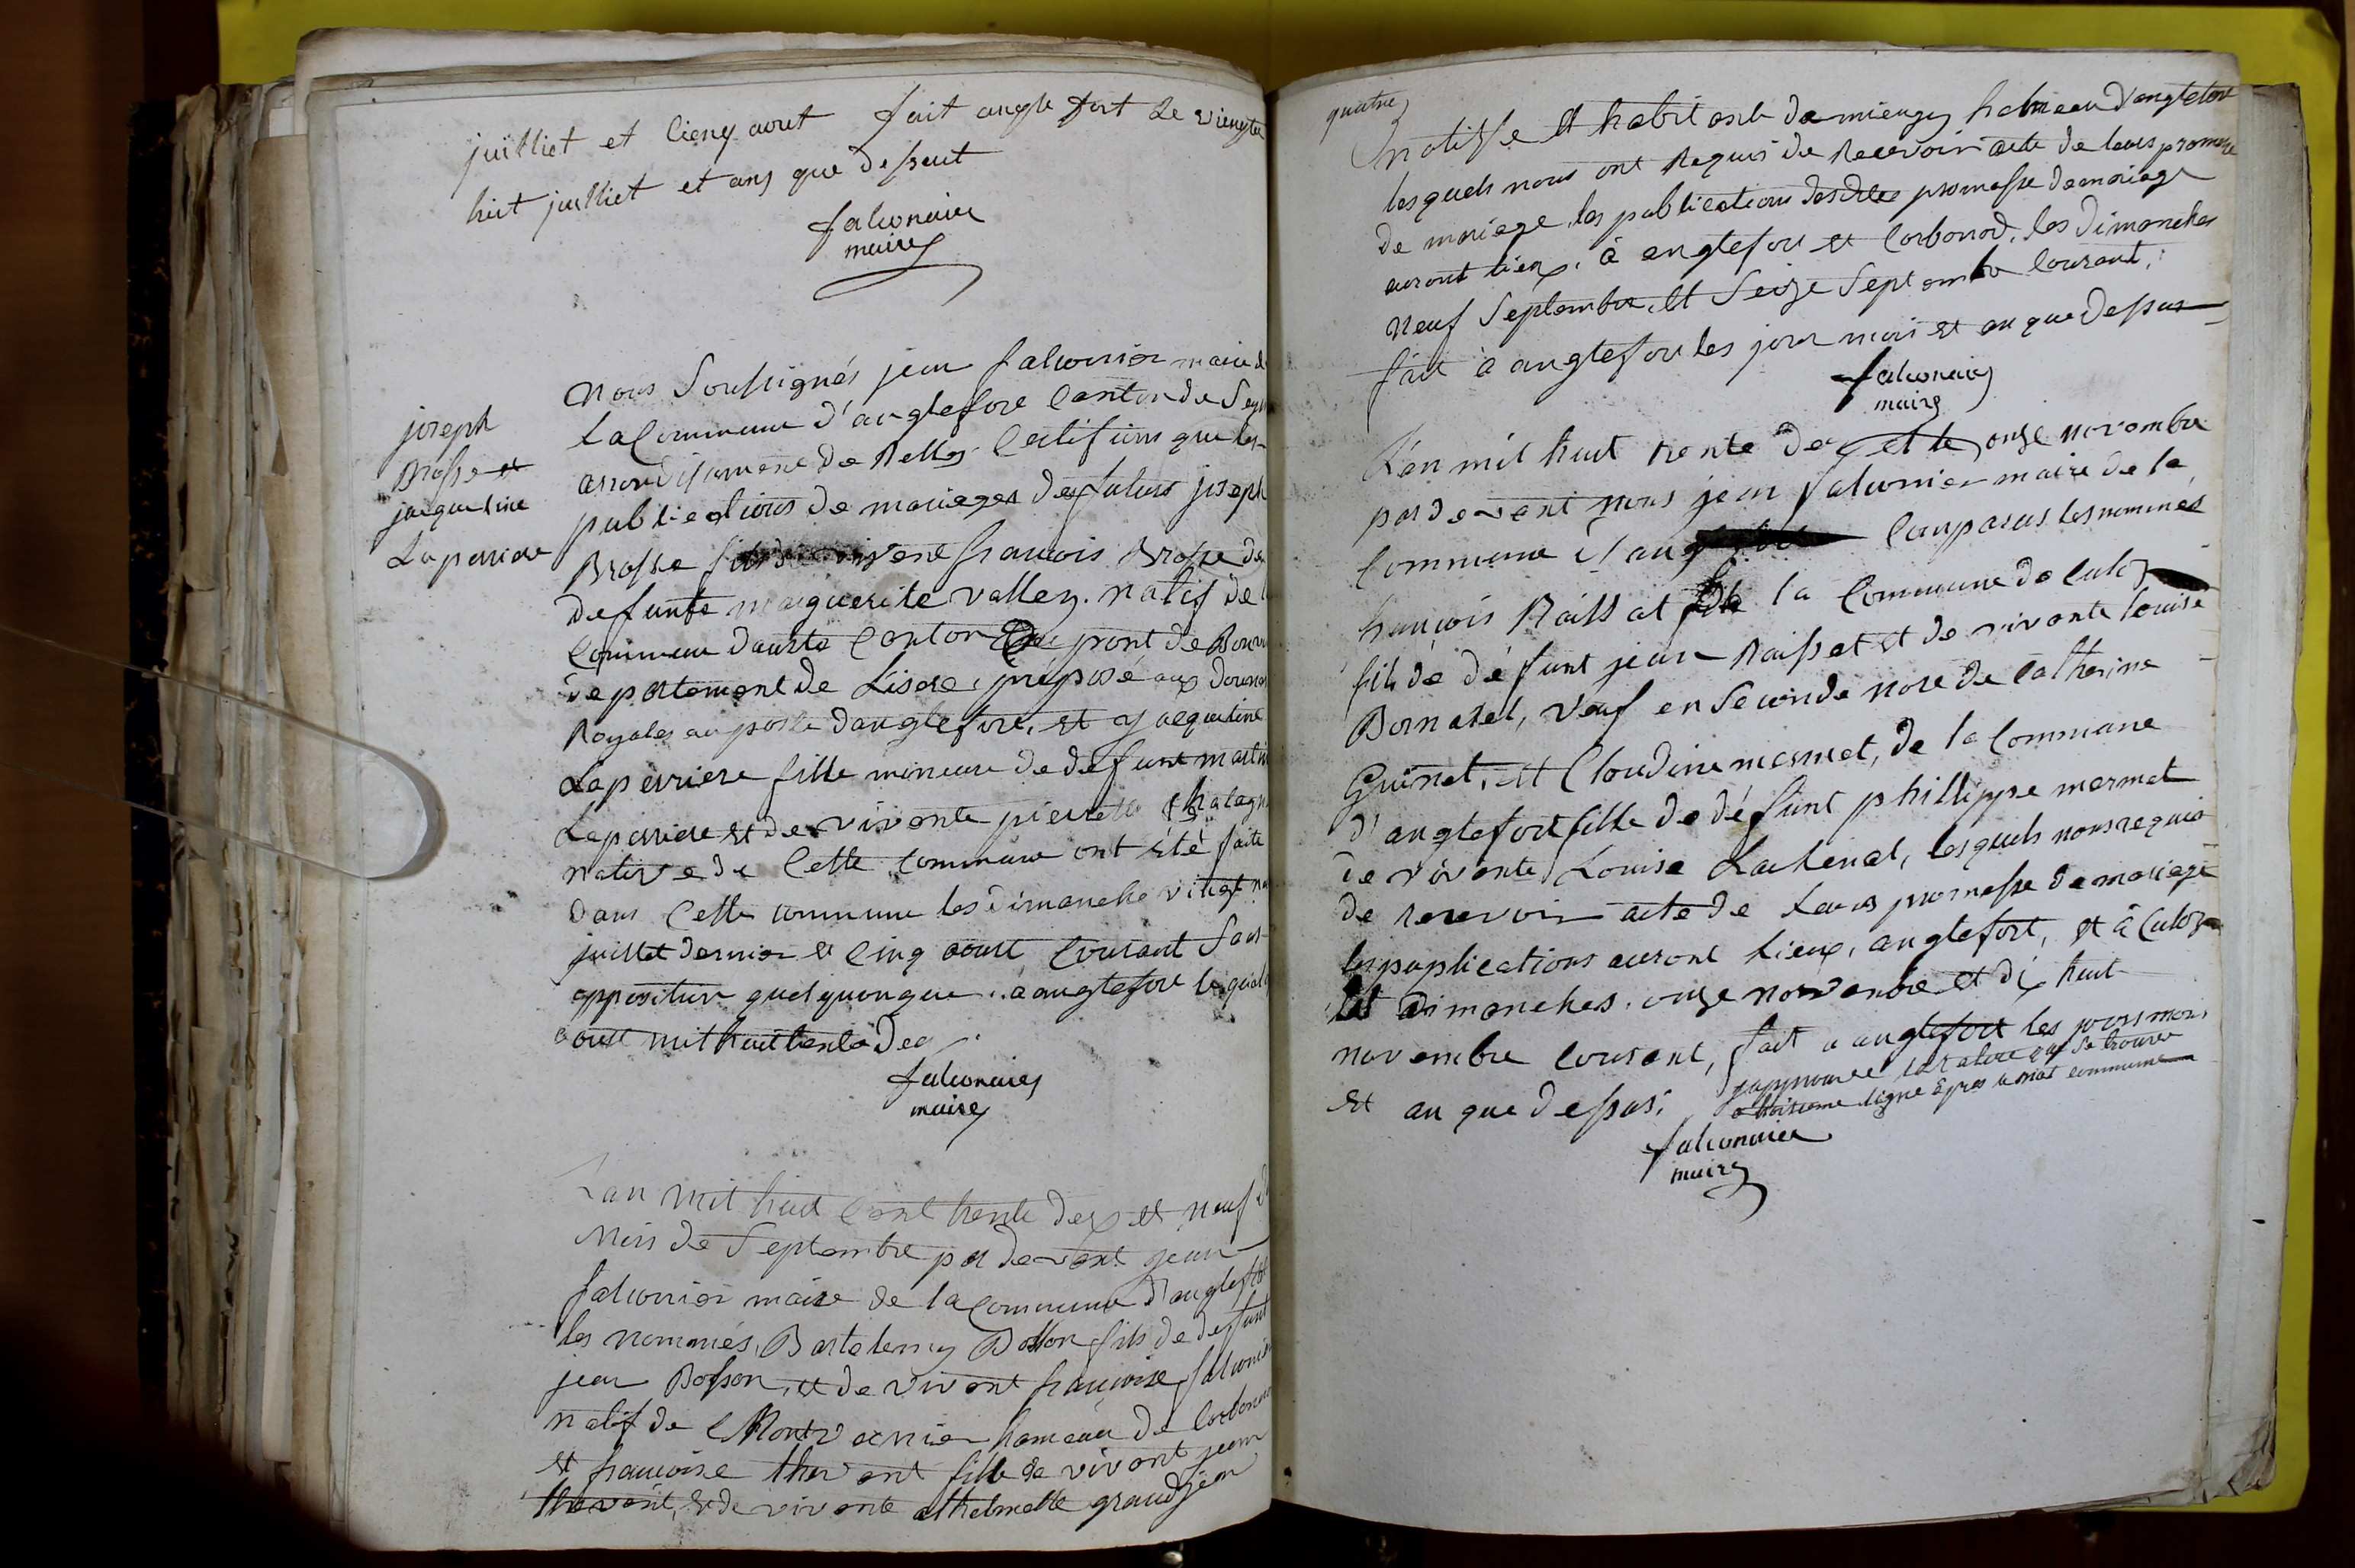 juilliet et cienq aout fait angle fort Le viengte
huit juilliet et ans que dessut
falconnier
maire
joseph
Brosse et
jacqueline
Laperriere
Nous Soussignés jean falconnier maire de
La Commune d'anglefore Canton de Seys
arrondissement de Belley Certifions que les
publications de mariages des futurs joseph
Brosse fils de vivent francois Brosse de
defunte marguerite valley. natif de
Commune daoste Canton du pont de Beauv
departement de Lisere, préposé aux douanes
Royales au poste danglefore, et jacqueline
Laperriere fille mineure de defunt martin
Laperriere et de vivente pierrette Chatagn
native de Cette Commune ont été faite
dans Cette commune les dimanche vingt n
juillet dernier et Cinq aoust Courant Sans
opposition quelquonque. a anglefore le
aoust mil huit trente deux.
falconnier
maire
Lan mil huit Cent trente deux et neuf d
Mois de Septembre par devant jean
falconnier maire de la Commune d'anglefort
les nommés, Bartelemy Bosson fils de defunt
jean Bosson, et de vivent francoise falconnier
natif de Montvernier hameau de Corbono
et francoise thevent fille de vivant jean
thevent, et de vivente grandjean
quatre
natisse et habitente de miengey hameau d'anglefort
lesquels nous ont Requis de Recevoir acte de leurs promesse
de mariage les publications desdites promesse de mariage
auront lieux, à anglefort et Corbonod, les dimanches
Neuf Septembre, et Seize Septembre Courant,
fait à anglefort les jour mois et an que Dessus
falconnier
maire
L'an mil huit trente deux et le onze novembre
par devant nous jean falconnier maire de la
Commune d'ang Comparus les nommés
francois Raissat de la Commune de Culoz
fils de défunt jean Raissat et de vivante louise
Bornarel, veuf en Seconde nore de Catherine
Guinet, et Cloudine mermet, de la Commune
d'anglefort fille de défunt phillippe mermet
de vivente Louise Lathenal, lesquels nous requis
de recevoir acte de Leurs promesse de mariage
les puplications auront lieux, anglefort, et à Culoz
les dimanches. onze novembre et dix huit
novembre Courant, fait a anglefort les jours mois
et an que dessus. japprouve qui se trouve
a troisieme ligne âpres le mot commune
falconnier
maire